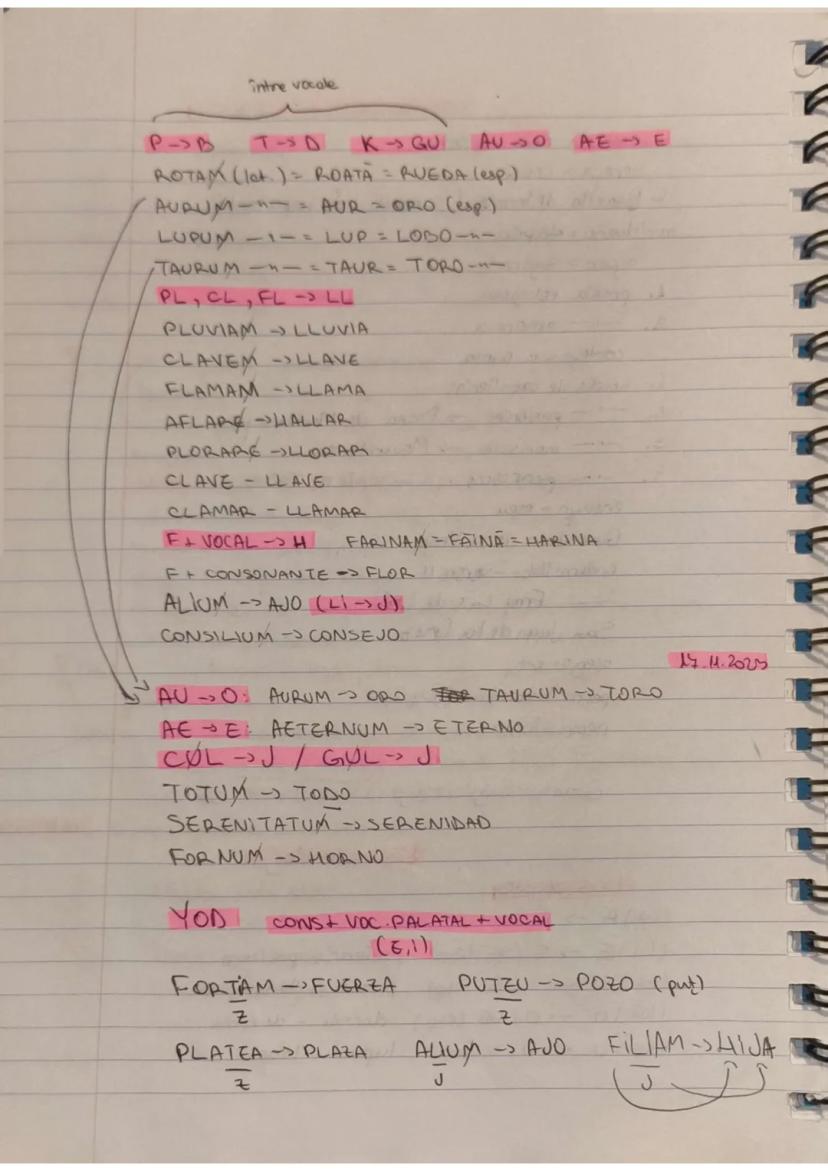 între vocale
P→B T→D K→GU AU→O AE→E
ROTAM (lat.) = ROATĂ = RUEDA (esp.)
AURUM —"— = AUR = ORO (esp.)
LUPUM —"— = LUP = LOBO —"—
TAURUM —"— = TAUR = TORO —"—
PL, CL, FL → LL
PLUVIAM → LLUVIA
CLAVEM → LLAVE
FLAMAM → LLAMA
AFLARE → HALLAR
PLORARE → LLORAR
CLAVE - LLAVE
CLAMAR - LLAMAR
F + VOCAL → H FARINAM = FĂINĂ = HARINA
F + CONSONANTE → FLOR
ALIUM → AJO (LI → J)
CONSILIUM → CONSEJO
17.11.2025
AU → O: AURUM → ORO TAURUM → TORO
AE → E: AETERNUM → ETERNO
CUL → J / GUL → J
TOTUM → TODO
SERENITATUM → SERENIDAD
FORNUM → HORNO
YOD CONS + VOC. PALATAL + VOCAL
(E, I)
FORTIAM → FUERZA PUTEU → POZO (puț)
Z Z
PLATEA → PLAZA ALIUM → AJO FILIAM → HIJA
Z J J